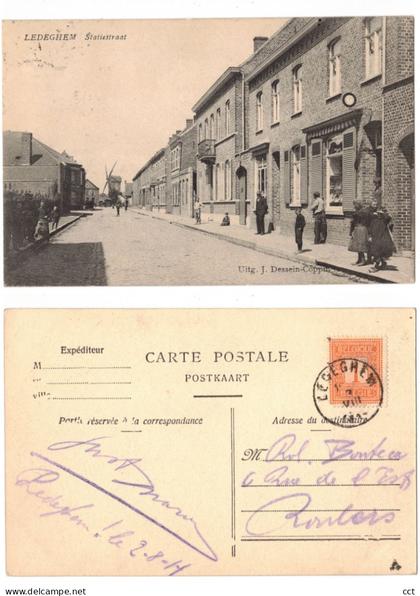 LEDEGHEM Statiestraat
Uitg. J. Dessein-Coppin
Expéditeur
CARTE POSTALE
POSTKAART
M
ville
Partie réservée à la correspondance
Adresse du destinataire
LEDEGHEM
VIII
Ledeghem le 2-8-14
M
6 Rue de l'Est
Roulers
cct